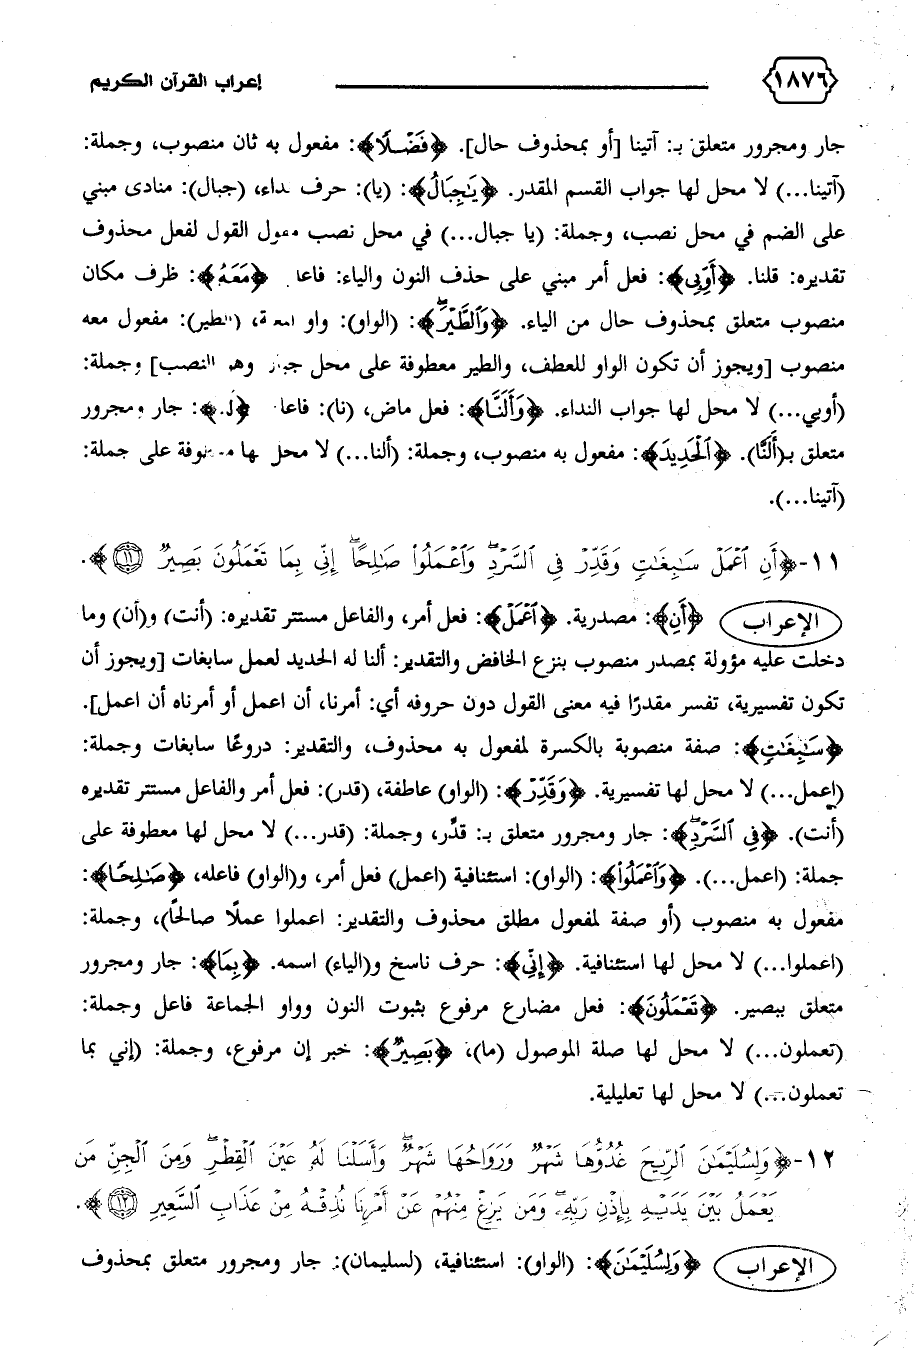 ١٨٧٦ إعراب القرآن الكريم
جار ومجرور متعلق بـ: آتينا [أو بمحذوف حال]. ﴿فَضْلًا﴾: مفعول به ثان منصوب، وجملة:
(آتينا...) لا محل لها جواب القسم المقدر. ﴿يَٰجِبَالُ﴾: (يا): حرف نداء، (جبال): منادى مبني
على الضم في محل نصب، وجملة: (يا جبال...) في محل نصب مقول القول لفعل محذوف
تقديره: قلنا. ﴿أَوِّبِي﴾: فعل أمر مبني على حذف النون والياء: فاعل ﴿مَعَهُۥ﴾: ظرف مكان
منصوب متعلق بمحذوف حال من الياء. ﴿وَٱلطَّيْرَۖ﴾: (الواو): واو المعية، (الطير): مفعول معه
منصوب [ويجوز أن تكون الواو للعطف، والطير معطوفة على محل جبال وهو النصب] وجملة:
(أوبي...) لا محل لها جواب النداء. ﴿وَأَلَنَّا﴾: فعل ماض، (نا): فاعل ﴿لَهُ﴾: جار ومجرور
متعلق بـ(أَلَنَّا). ﴿ٱلْحَدِيدَ﴾: مفعول به منصوب، وجملة: (ألنا...) لا محل لها معطوفة على جملة:
(آتينا...).
١١-﴿أَنِ ٱعْمَلْ سَٰبِغَٰتٍ وَقَدِّرْ فِي ٱلسَّرْدِۖ وَٱعْمَلُوا۟ صَٰلِحًاۖ إِنِّي بِمَا تَعْمَلُونَ بَصِيرٌ ١١﴾.
الإعراب ﴿أَنِ﴾: مصدرية. ﴿ٱعْمَلْ﴾: فعل أمر، والفاعل مستتر تقديره: (أنت) و(أن) وما
دخلت عليه مؤولة بمصدر منصوب بنزع الخافض والتقدير: ألنا له الحديد لعمل سابغات [ويجوز أن
تكون تفسيرية، تفسر مقدرًا فيه معنى القول دون حروفه أي: أمرنا، أن اعمل أو أمرناه أن اعمل].
﴿سَٰبِغَٰتٍ﴾: صفة منصوبة بالكسرة لمفعول به محذوف، والتقدير: دروعًا سابغات وجملة:
(اعمل...) لا محل لها تفسيرية. ﴿وَقَدِّرْ﴾: (الواو) عاطفة، (قدر): فعل أمر والفاعل مستتر تقديره
(أنت). ﴿فِي ٱلسَّرْدِۖ﴾: جار ومجرور متعلق بـ: قدِّر، وجملة: (قدر...) لا محل لها معطوفة على
جملة: (اعمل...). ﴿وَٱعْمَلُوا۟﴾: (الواو): استئنافية (اعمل) فعل أمر، و(الواو) فاعله، ﴿صَٰلِحًا﴾:
مفعول به منصوب (أو صفة لمفعول مطلق محذوف والتقدير: اعملوا عملًا صالحًا)، وجملة:
(اعملوا...) لا محل لها استئنافية. ﴿إِنِّي﴾: حرف ناسخ و(الياء) اسمه. ﴿بِمَا﴾: جار ومجرور
متعلق ببصير. ﴿تَعْمَلُونَ﴾: فعل مضارع مرفوع بثبوت النون وواو الجماعة فاعل وجملة:
(تعملون...) لا محل لها صلة الموصول (ما)، ﴿بَصِيرٌ﴾: خبر إن مرفوع، وجملة: (إني بما
تعملون...) لا محل لها تعليلية.
١٢-﴿وَلِسُلَيْمَٰنَ ٱلرِّيحَ غُدُوُّهَا شَهْرٌ وَرَوَاحُهَا شَهْرٌۖ وَأَسَلْنَا لَهُۥ عَيْنَ ٱلْقِطْرِۖ وَمِنَ ٱلْجِنِّ مَن
يَعْمَلُ بَيْنَ يَدَيْهِ بِإِذْنِ رَبِّهِۦۖ وَمَن يَزِغْ مِنْهُمْ عَنْ أَمْرِنَا نُذِقْهُ مِنْ عَذَابِ ٱلسَّعِيرِ ١٢﴾.
الإعراب ﴿وَلِسُلَيْمَٰنَ﴾: (الواو): استئنافية، (لسليمان): جار ومجرور متعلق بمحذوف